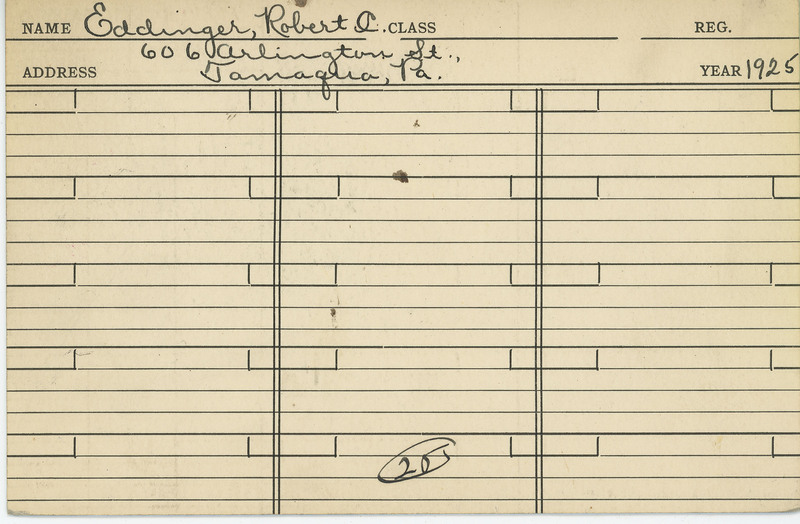 NAME Eddinger, Robert C. CLASS REG.
606 Arlington St.,
ADDRESS Tamaqua, Pa. YEAR 1925
25